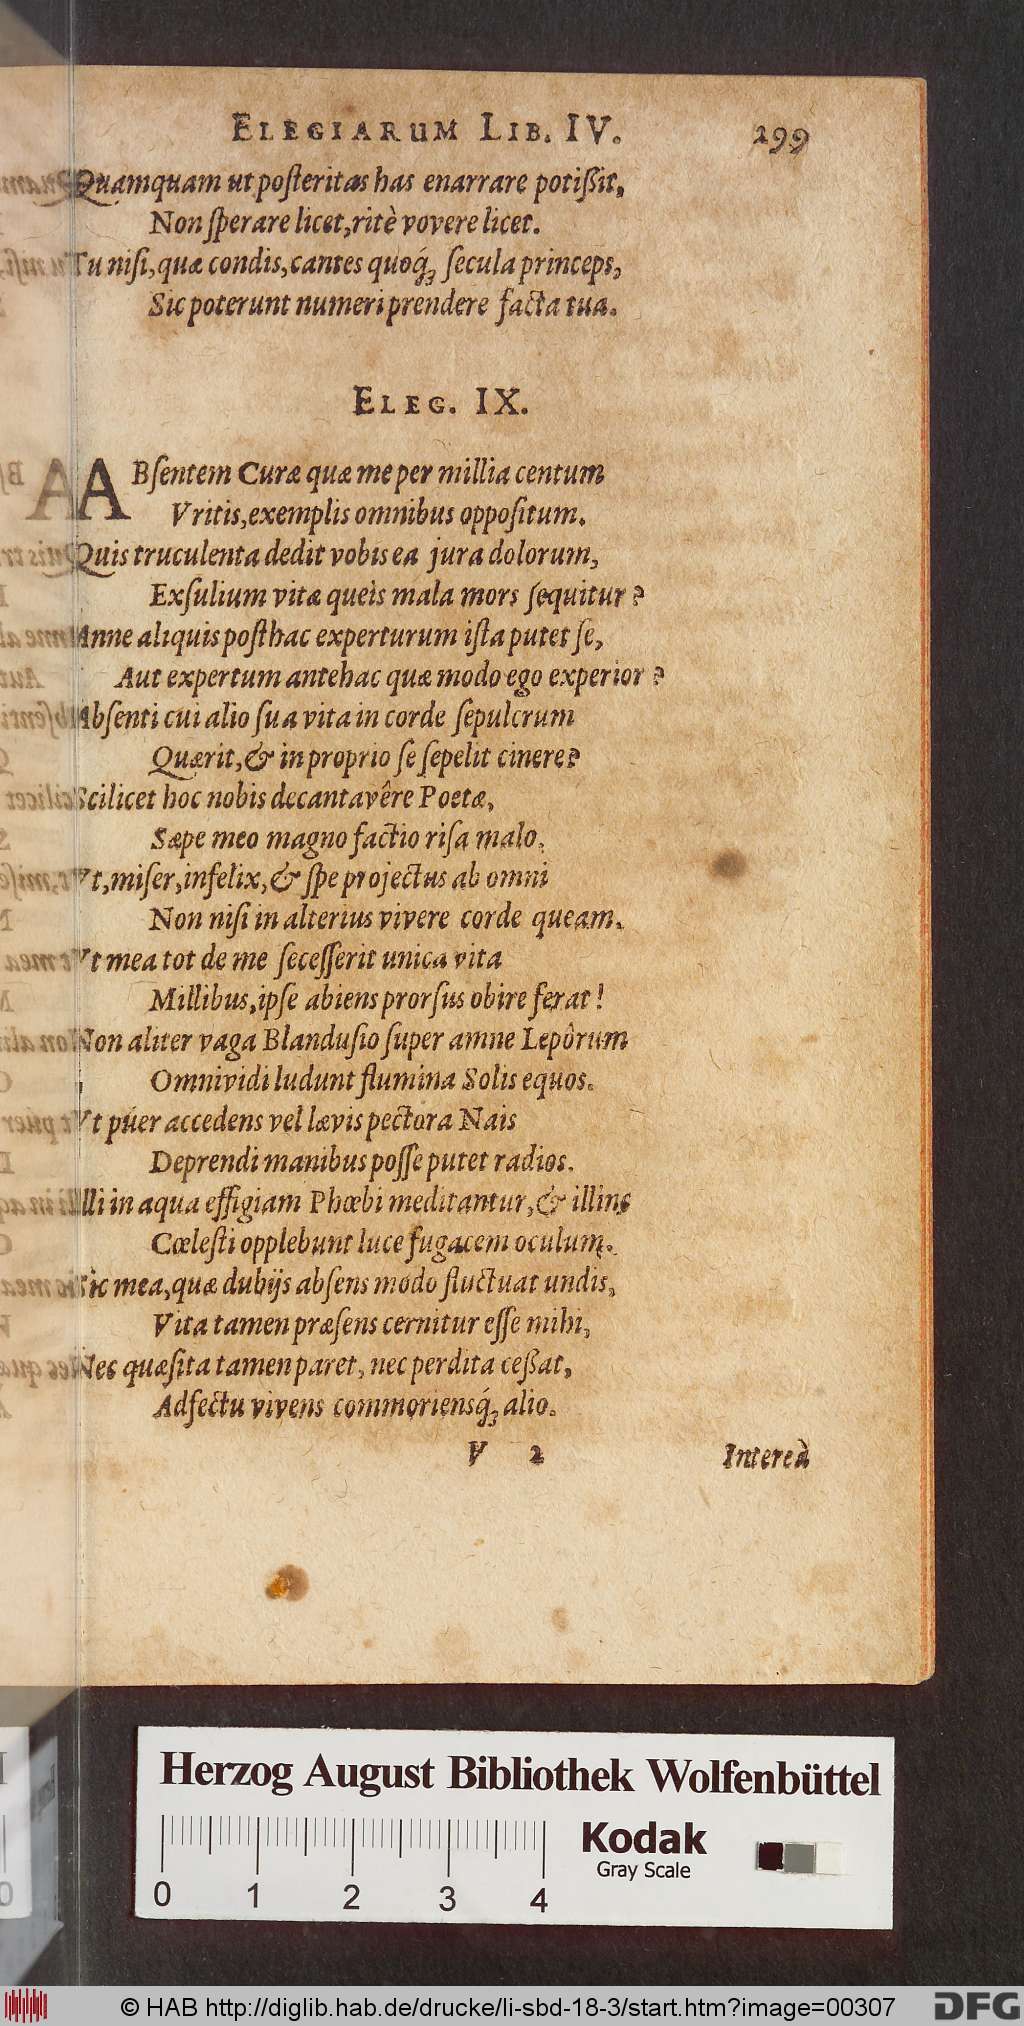 ELEGIARUM LIB. IV. 299
Quamquam ut posteritas has enarrare potißit,
Non sperare licet, ritè vovere licet.
Tu nisi, quæ condis, cantes quoq́; secula princeps,
Sic poterunt numeri prendere facta tua.
ELEG. IX.
ABsentem Curæ quæ me per millia centum
Vritis, exemplis omnibus oppositum.
Quis truculenta dedit vobis ea jura dolorum,
Exsulium vitæ queis mala mors sequitur?
Anne aliquis posthac experturum ista putet se,
Aut expertum antehac quæ modo ego experior?
Absenti cui alio sua vita in corde sepulcrum
Quærit, & in proprio se sepelit cinere?
Scilicet hoc nobis decantavêre Poetæ,
Sæpe meo magno factio risa malo.
Vt, miser, infelix, & spe projectus ab omni
Non nisi in alterius vivere corde queam.
Vt mea tot de me secesserit unica vita
Millibus, ipse abiens prorsus obire ferat!
Non aliter vaga Blandusio super amne Lepôrum
Omnividi ludunt flumina Solis equos.
Vt puer accedens vel lævis pectora Nais
Deprendi manibus posse putet radios.
Illi in aqua effigiam Phœbi meditantur, & illinc
Cœlesti opplebunt luce fugacem oculum.
Sic mea, quæ dubijs absens modo fluctuat undis,
Vita tamen præsens cernitur esse mihi,
Nec quæsita tamen paret, nec perdita ceßat,
Adfectu vivens commoriensq́; alio.
V 2 Intereà
Herzog August Bibliothek Wolfenbüttel
Kodak
Gray Scale
0 1 2 3 4
© HAB http://diglib.hab.de/drucke/li-sbd-18-3/start.htm?image=00307
DFG